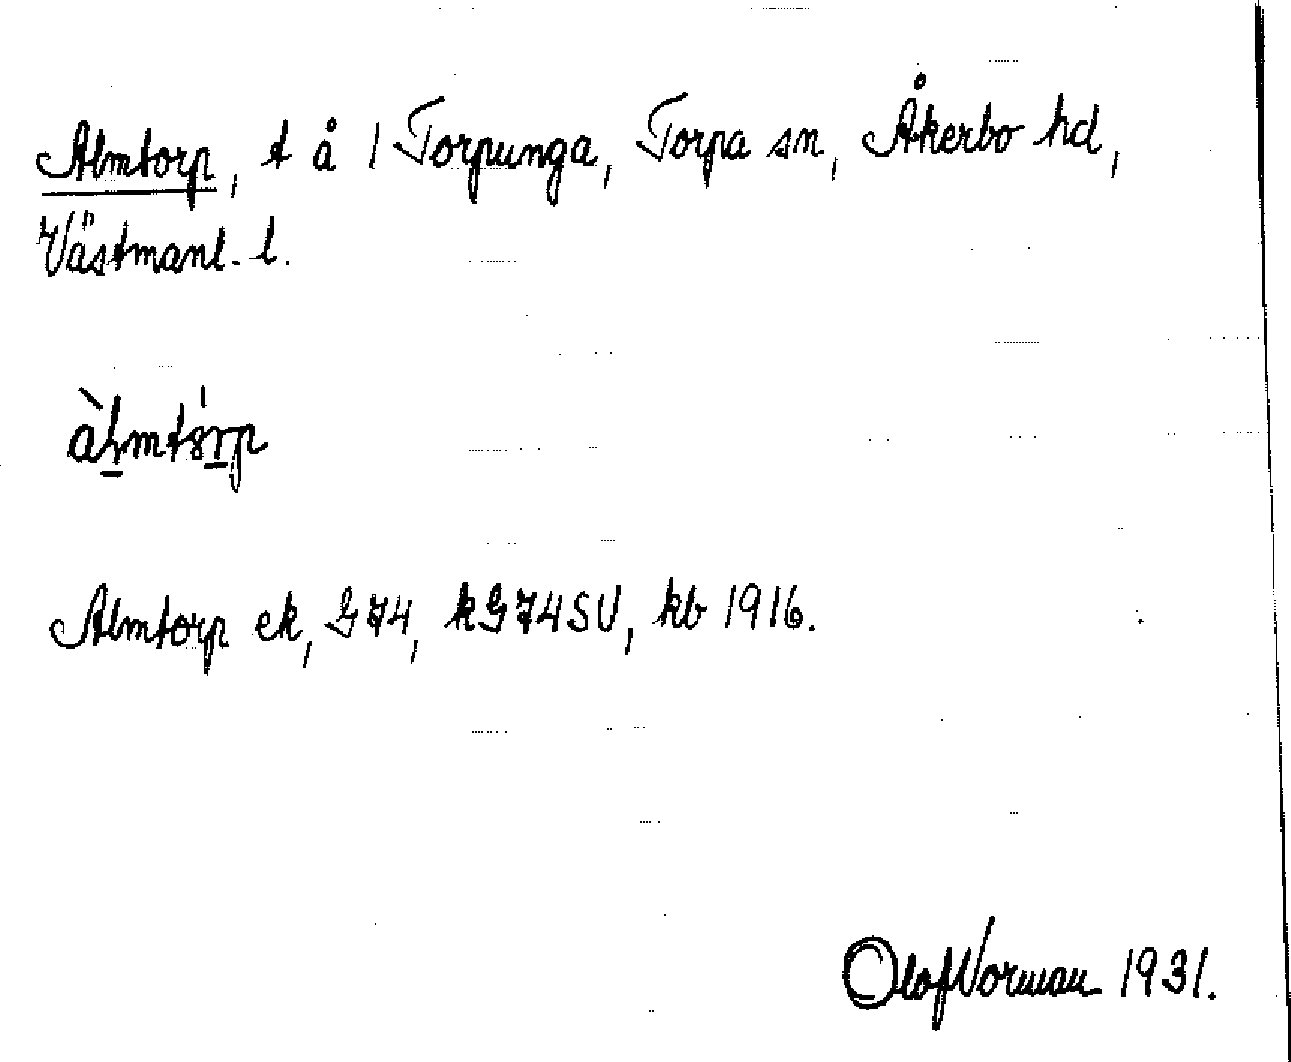 Almtorp, t å 1 Torpunga, Torpa sn, Åkerbo hd,
Västmanl. l.
Almtorp ek, G74, kG74SV, kb 1916.
Olof Norman 1931.